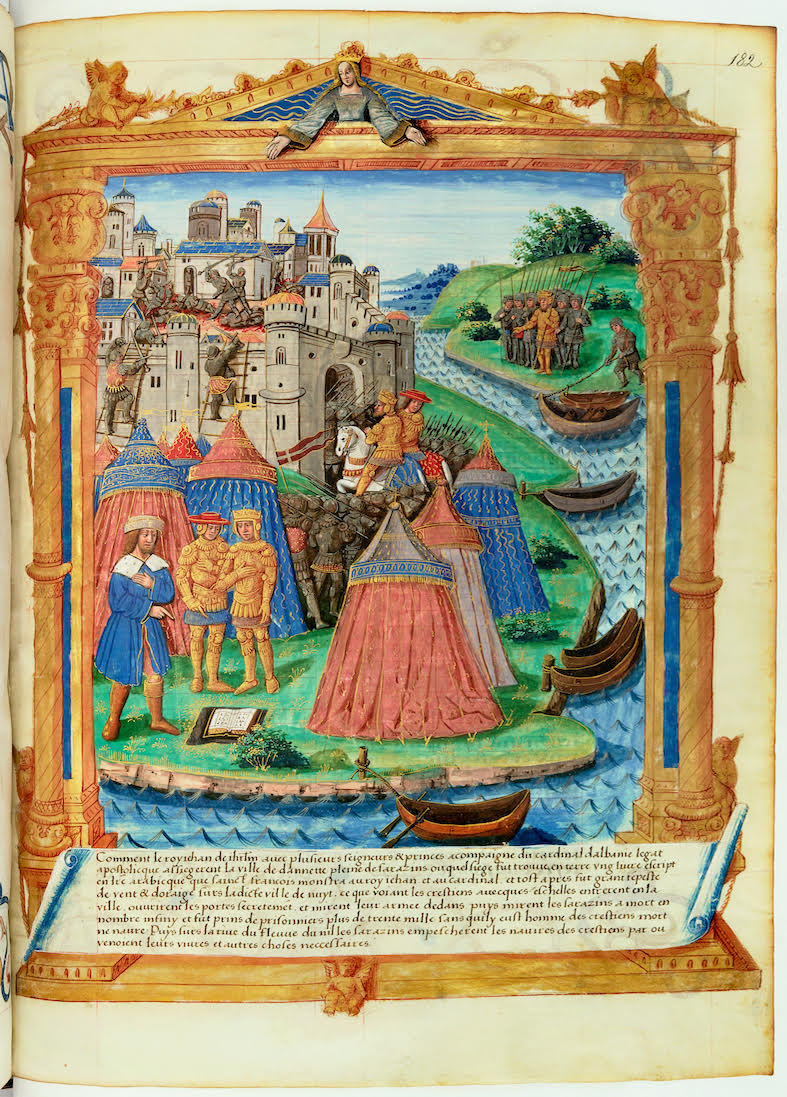 182
Comment le roy iehan de ihrlm avec plusieurs seigneurs & princes acompaigne du cardinal dalbanie legat
apostolicque assiegerent la ville de dannette pleine de sarazins ou quel siege fut trouve, en terre ung livre escript
en lre arabicque que sainct francois monstra au roy iehan et au cardinal . et tost apres fut grant tēpeste
de vent & doraige surs ladicte ville de nuyt , ce que voiant les crestiens avecques eschelles entrerent en la
ville , ouvrirent les portes secretemēt et mirent leur armee dedans puys mirent les sarazins a mort en
nombre infiny et fut prins de prisonniers plus de trente mille sans quil y eust homme des crestiens mort
ne navre Puys surs la rive du fleuve du nil les sarazins empescherent les navires des crestiens par ou
venoient leurs vivres et autres choses neccessaires